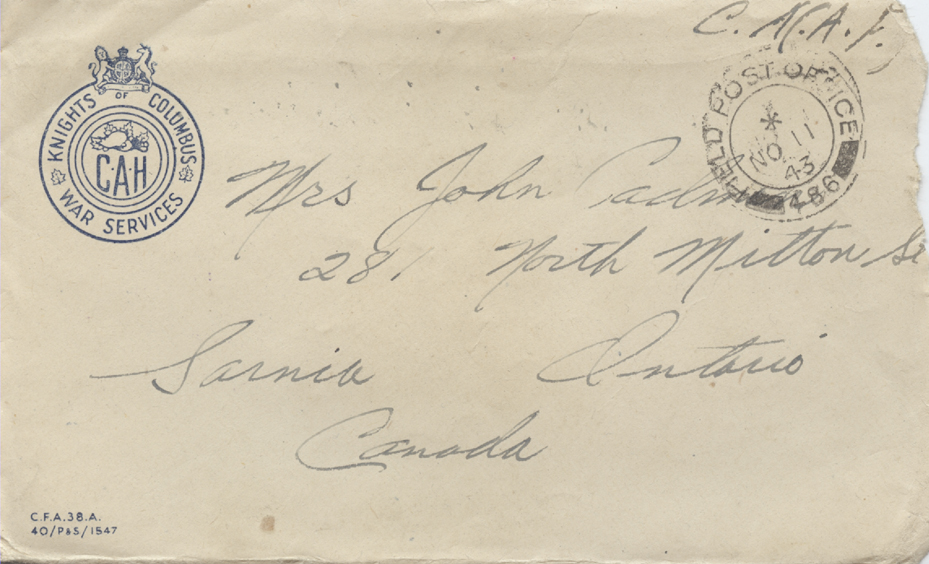 C. A(. A. F.
KNIGHTS OF COLUMBUS
C·A·H
WAR SERVICES
FIELD POST OFFICE
NO 11
43
486
Mrs John
281 North Mitton St
Sarnia Ontario
Canada
C.F.A.38.A.
40/P&S/1547